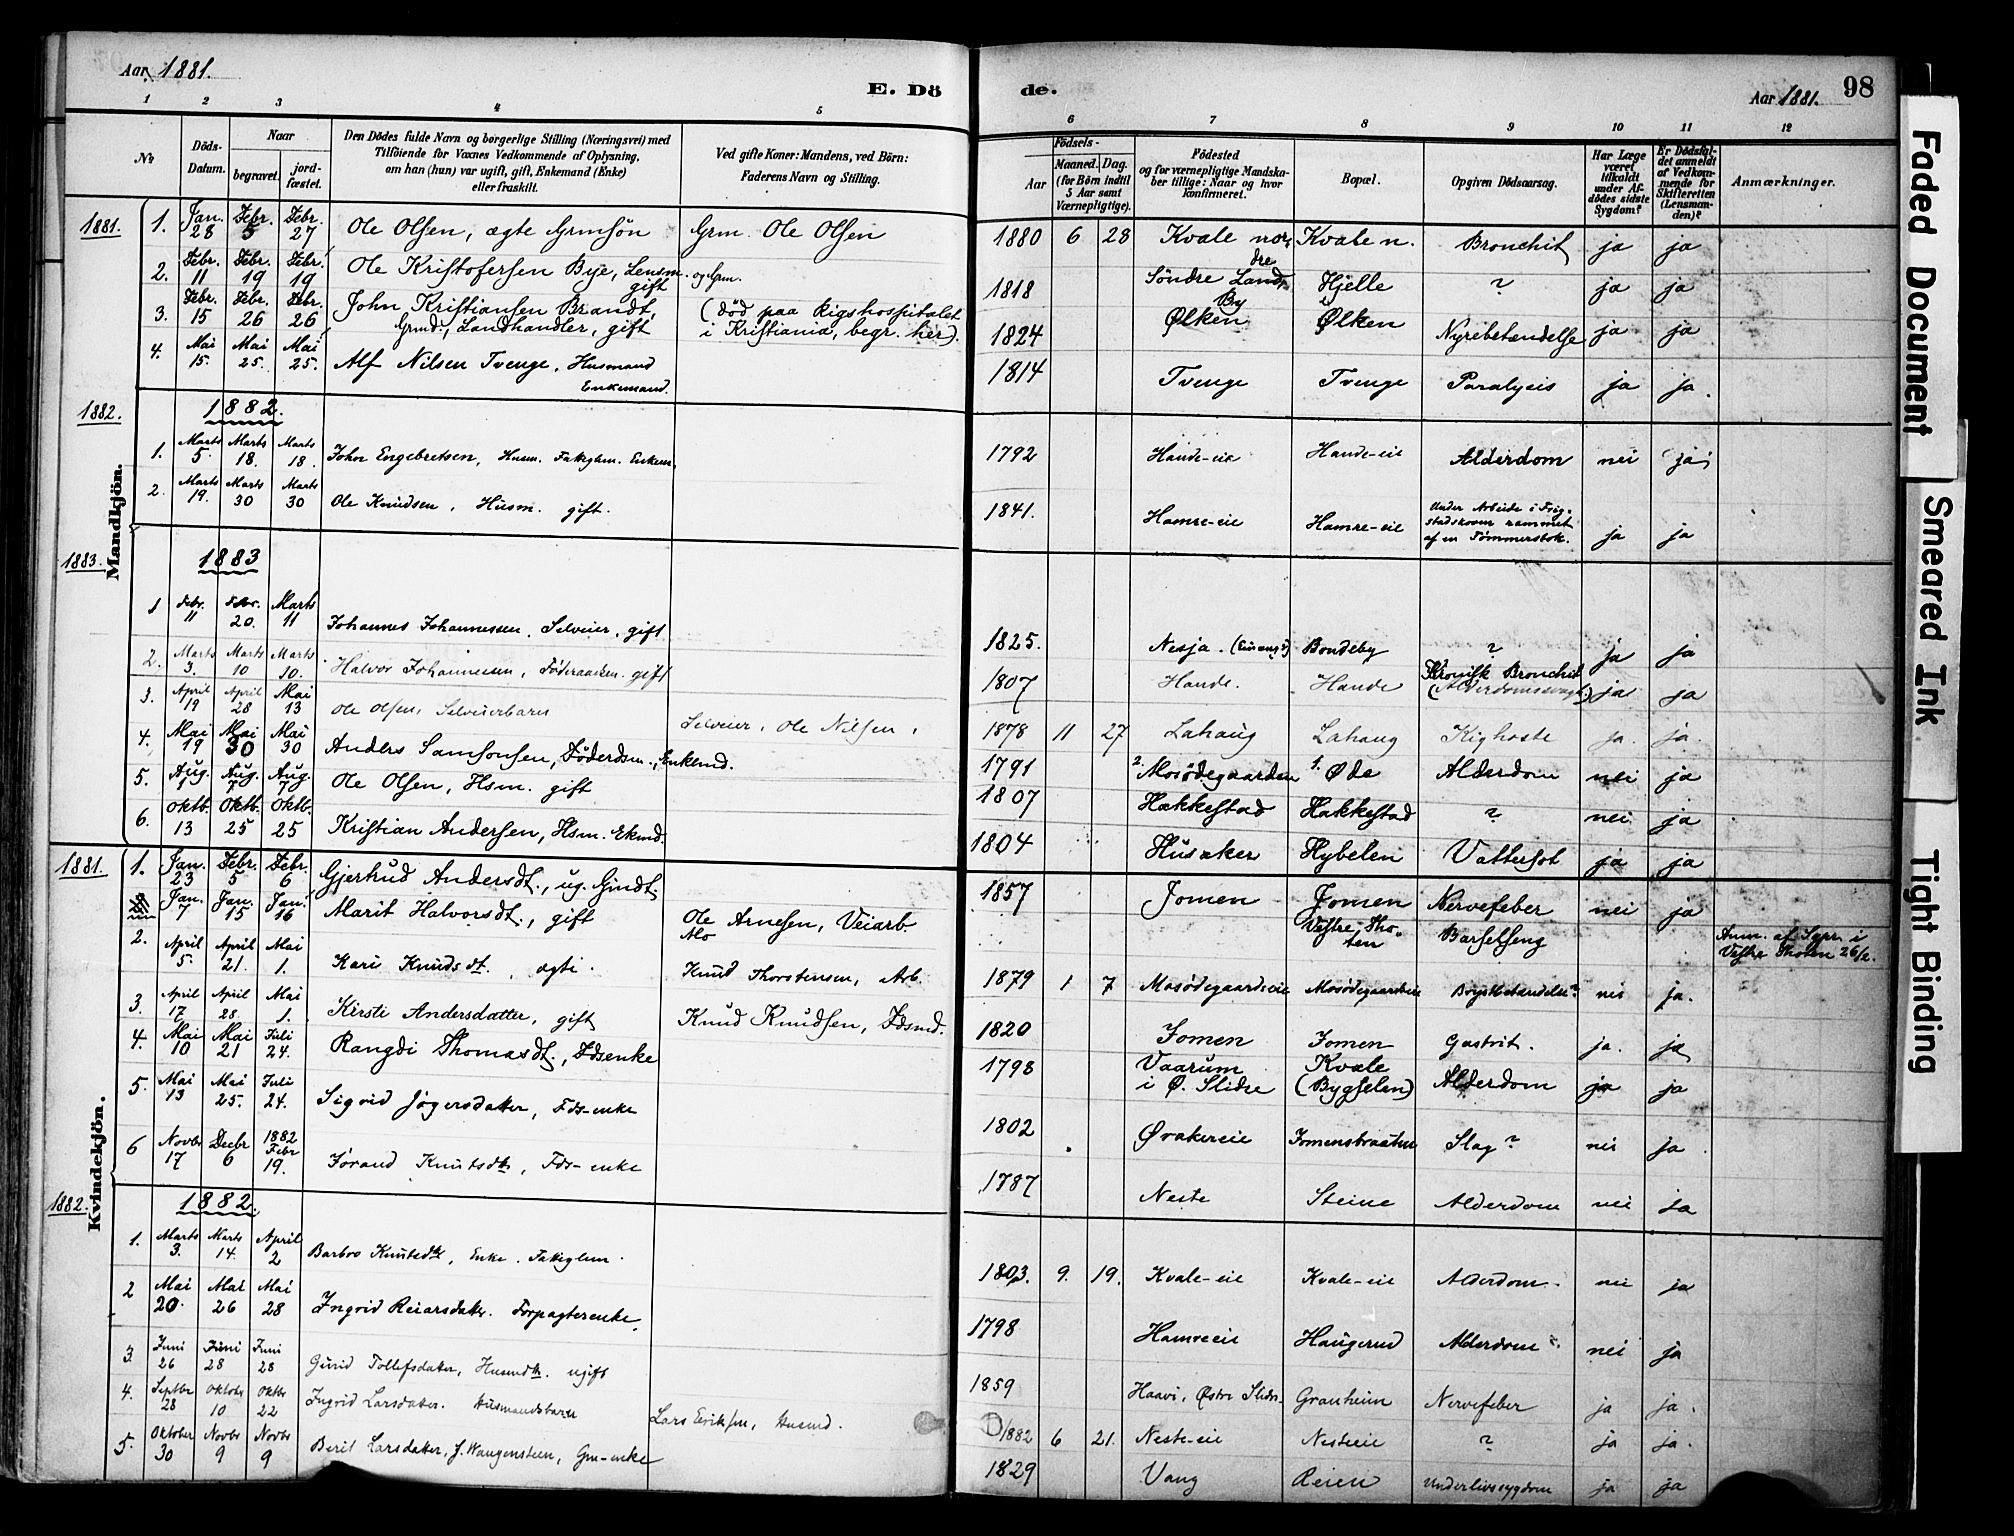 Aar 1881.
E. Dö
de.
Aar 1881.
98
1 2 3 4 5
6 7 8 9 10 11 12
No
Döds-Datum.
Naar
begravet.
jordfæstet.
Den Dödes fulde Navn og borgerlige Stilling (Næringsvei) med
Tilföiende for Voxnes Vedkommende af Oplysning,
om han (hun) var ugift, gift, Enkemand (Enke)
eller fraskilt.
Ved gifte Koner: Mandens, ved Börn:
Faderens Navn og Stilling.
Födsels-
Aar
Maaned.
Dag.
(for Börn indtil
5 Aar samt
Værnepligtige).
Födested
og for værnepligtige Mandska-
ber tillige: Naar og hvor
konfirmeret.
Bopæl.
Opgiven Dödsaarsag.
Har Læge
været
tilkaldt
under Af-
dödes sidste
Sygdom?
Er Dödsfal-
det anmeldt
af Vedkom-
mende for
Skifteretten
(Lensman-
den)?
Anmærkninger.
Mandkjön.
1881. 1. Jan. 28 Febr. 5 Febr. 27 Ole Olsen, ægte Grmsön Grm. Ole Olsen 1880 6 28 Kvale nordre Kvale n. Bronchit ja ja
2. Febr. 11 Febr. 19 Febr. 19 Ole Kristofersen Bye, Lensm. og Grm. gift 1818 Söndre Land, By Hjelle ? ja ja
3. Febr. 15 Febr. 26 Febr. 26 John Kristiansen Brandt, Grmd., Landhandler, gift (död paa Rigshospitalet i Kristiania, begr. her). 1824 Ølken Ølken Nyrebetændelse ja ja
4. Mai 15. Mai 25. Mai 25. Alf Nilsen Tvenge, Husmand Enkemand. 1814 Tvenge Tvenge Paralysis ja ja.
1882.
1882.
1. Marts 5. Marts 18. Marts 18. John Engebretsen, Husm. Fattiglem. Enkem. 1792 Hande-eie Hande-eie Alderdom nei ja
2. Marts 19. Marts 30 Marts 30 Ole Knudsen, Husm. gift. 1841. Hamre-eie Hamre-eie Under Arbeide i rammet af en Tömmerstok. ja ja
1883.
1883
1 Febr. 11 Febr. 20. Marts 11 Johannes Johannessen, Selveier, gift 1825. Nesja. Bondeby ? ja ja
2. Marts 3. Marts 10 Marts 10. Halvor Johannessen, Föderaadsm. gift 1807 Hande. Hande Kronisk Bronchit (Alderdomssvagh.) ja ja
3. April 19 April 28 Mai 13 Ole Olsen, Selveierbarn Selveier, Ole Nilsen, 1878 11 27 Lahaug Lahaug Kighoste ja. ja.
4. Mai 19 Mai 30 Mai 30 Anders Samsonsen, Föderdsm., Enkemd. 1791 2. Mosödegaarden 1. Øde Alderdom nei ja
5. Aug. 1 Aug. 7 Aug. 7 Ole Olsen, Hsm. gift 1807 Hakkestad Hakkestad ? nei ja
6. Oktb. 13 Oktb. 25 Oktb. 25 Kristian Andersen, Hsm. Ekmd. 1804 Husaker Hybelen Vattersot ja ja
Kvindekjön.
1881. 1. Jan. 23 Febr. 5 Febr. 6 Gjertrud Andersdt., ug. Gmdt. 1857 Jomen Jomen Nervefeber nei ja
Jan. 7 Jan. 15 Jan. 16 Marit Halvorsdt., gift Ole Arnesen, Veiarb. Mo Vestre Thoten Barselseng Anm. af Sgpr. i Vestre Thoten 26/2.
2. April 5. April 21. Mai 1. Kari Knudsdt., ægte. Knud Thorstensen, Arb. 1879 1 7 Mosödegaardseie Mosödegaardseie Brystbetændelse? nei ja.
3. April 17 April 28. Mai 1. Kirsti Andersdatter, gift Knud Knudsen, Fdsmd. 1820 Jomen Jomen Gastrit. ja. ja
4. Mai 10 Mai 21 Juli 24. Rangdi Thomasdt., Fdsenke 1798 Vaarum i Ø. Slidre Kvale (Bygselen) Alderdom ja ja
5. Mai 13 Mai 25. Juli 24. Sigrid Jögersdatter, Fds-enke 1802 Øvakereie Jomensbraaten Slag? nei ja.
6 Novbr 17 Decbr 6 1882 Febr 19. Jørand Knutsdtr, Fds-enke 1787 Neste Steine Alderdom nei ja
1882.
1882.
1. Marts 3. Marts 14. April 2 Barbro Knutsdtr, Enke. Fattiglem. 1803. 9. 19. Kvale-eie Kvale-eie Alderdom. nei ja
2 Mai 20. Mai 26 Mai 28 Ingrid Reiarsdatter. Forpagterenke. 1798 Hamreeie Haugerud Alderdom nei ja
3. Juni 26 Juni 28 Juni 28 Gurid Tollefsdatter, Husmdtr. ugift 1859 Haavi, Østre Slidre. Granheim Nervefeber ja ja.
4. Septbr 28 Oktober 10 Oktbr 22 Ingrid Larsdatter. Husmandsbarn Lars Eriksen, Husmd. 1882 6 21. Neste-eie Nesteeie ? ja ja.
5. Oktober 30 Novbr 9 Novbr 9 Berit Larsdatter, f. Wangensteen, Grm-enke 1829 Vang Reien Underlivssygdom ja ja
Faded Document
Smeared Ink
Tight Binding